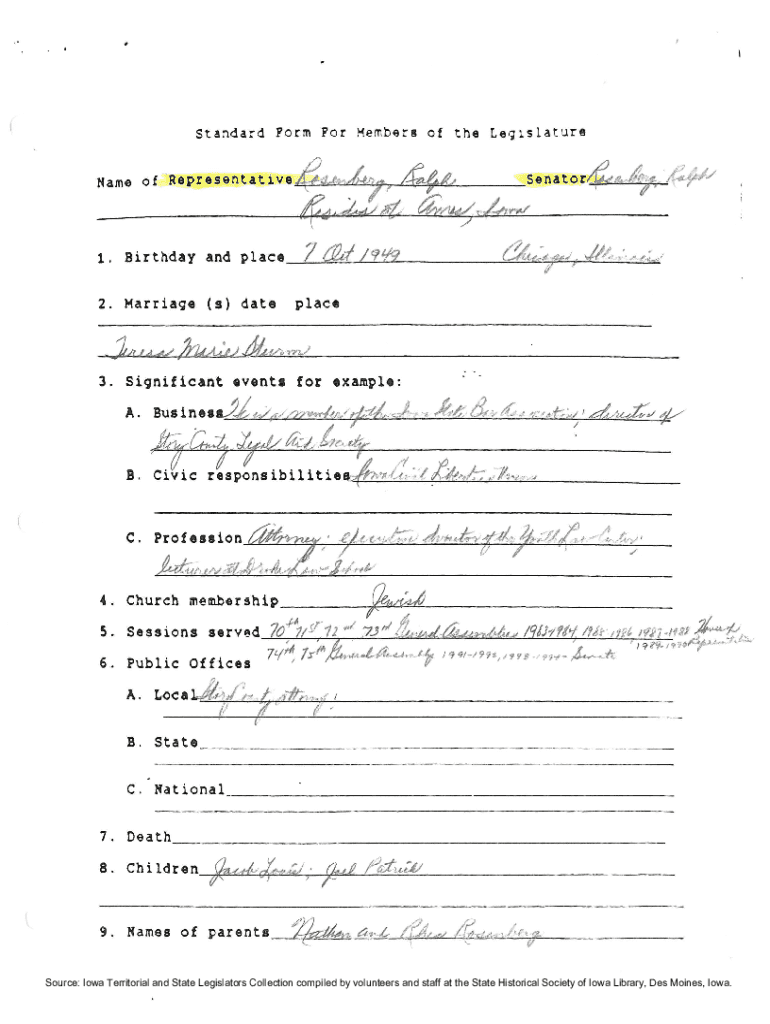 Standard Form For Members of the Legislature
Name of Representative Rosenberg, Ralph Senator Rosenberg, Ralph
Resides at Ames, Iowa
1. Birthday and place 7 Oct 1949 Chicago, Illinois
2. Marriage (s) date place
Teresa Marie
3. Significant events for example:
A. Business He is a member of the Iowa State Bar Association; director of
Story County Legal Aid Society
B. Civic responsibilities Iowa Civil Liberties Union
C. Profession Attorney; executive director of the Youth Law Center;
lecturer at Drake Law School
4. Church membership Jewish
5. Sessions served 70th, 71st, 72nd, 73rd General Assemblies 1983-1984, 1985-1986, 1987-1988 House of
1989-1990 Representatives
74th, 75th General Assembly Senate
6. Public Offices
A. Local Story County attorney;
B. State
C. National
7. Death
8. Children Jacob Louis; Joel Patrick
9. Names of parents Nathan and Rhea Rosenberg
Source: Iowa Territorial and State Legislators Collection compiled by volunteers and staff at the State Historical Society of Iowa Library, Des Moines, Iowa.